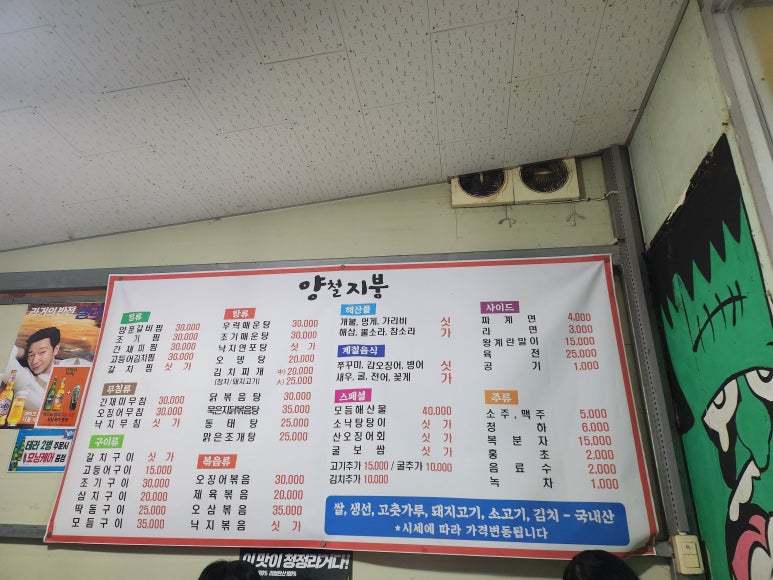 양철지붕
찜류
양푼갈비찜 30,000
조기찜 30,000
간재미찜 30,000
고등어김치찜 30,000
갈치찜 싯가
무침류
간재미무침 30,000
오징어무침 30,000
낙지무침 싯가
구이류
갈치구이 싯가
고등어구이 15,000
조기구이 30,000
삼치구이 20,000
딱돔구이 25,000
모듬구이 35,000
탕류
우럭매운탕 30,000
조기매운탕 30,000
낙지연포탕 싯가
오뎅탕 20,000
김치찌개 中) 20,000
(참치/돼지고기) 大) 25,000
닭볶음탕 30,000
묵은지닭볶음탕 35,000
동태탕 25,000
맑은조개탕 25,000
볶음류
오징어볶음 30,000
제육볶음 20,000
오삼볶음 35,000
낙지볶음 싯가
해산물
개불, 멍게, 가리비 싯
해삼, 뿔소라, 참소라 가
계절음식
쭈꾸미, 갑오징어, 병어 싯
새우, 굴, 전어, 꽃게 가
스페셜
모듬해산물 40,000
소낙탕탕이 싯가
산오징어회 싯가
굴보쌈 싯가
고기추가 15,000 / 굴추가 10,000
김치추가 10,000
사이드
찌계면 4,000
라면 3,000
왕계란말이 15,000
육전 25,000
공기 1,000
주류
소주, 맥주 5,000
청하 6,000
복분자 15,000
홍초 2,000
음료수 2,000
녹차 1,000
쌀, 생선, 고춧가루, 돼지고기, 소고기, 김치 - 국내산
*시세에 따라 가격변동됩니다
테라 2병 주문시
모닝케어 증정
이 맛이 청정라거다!